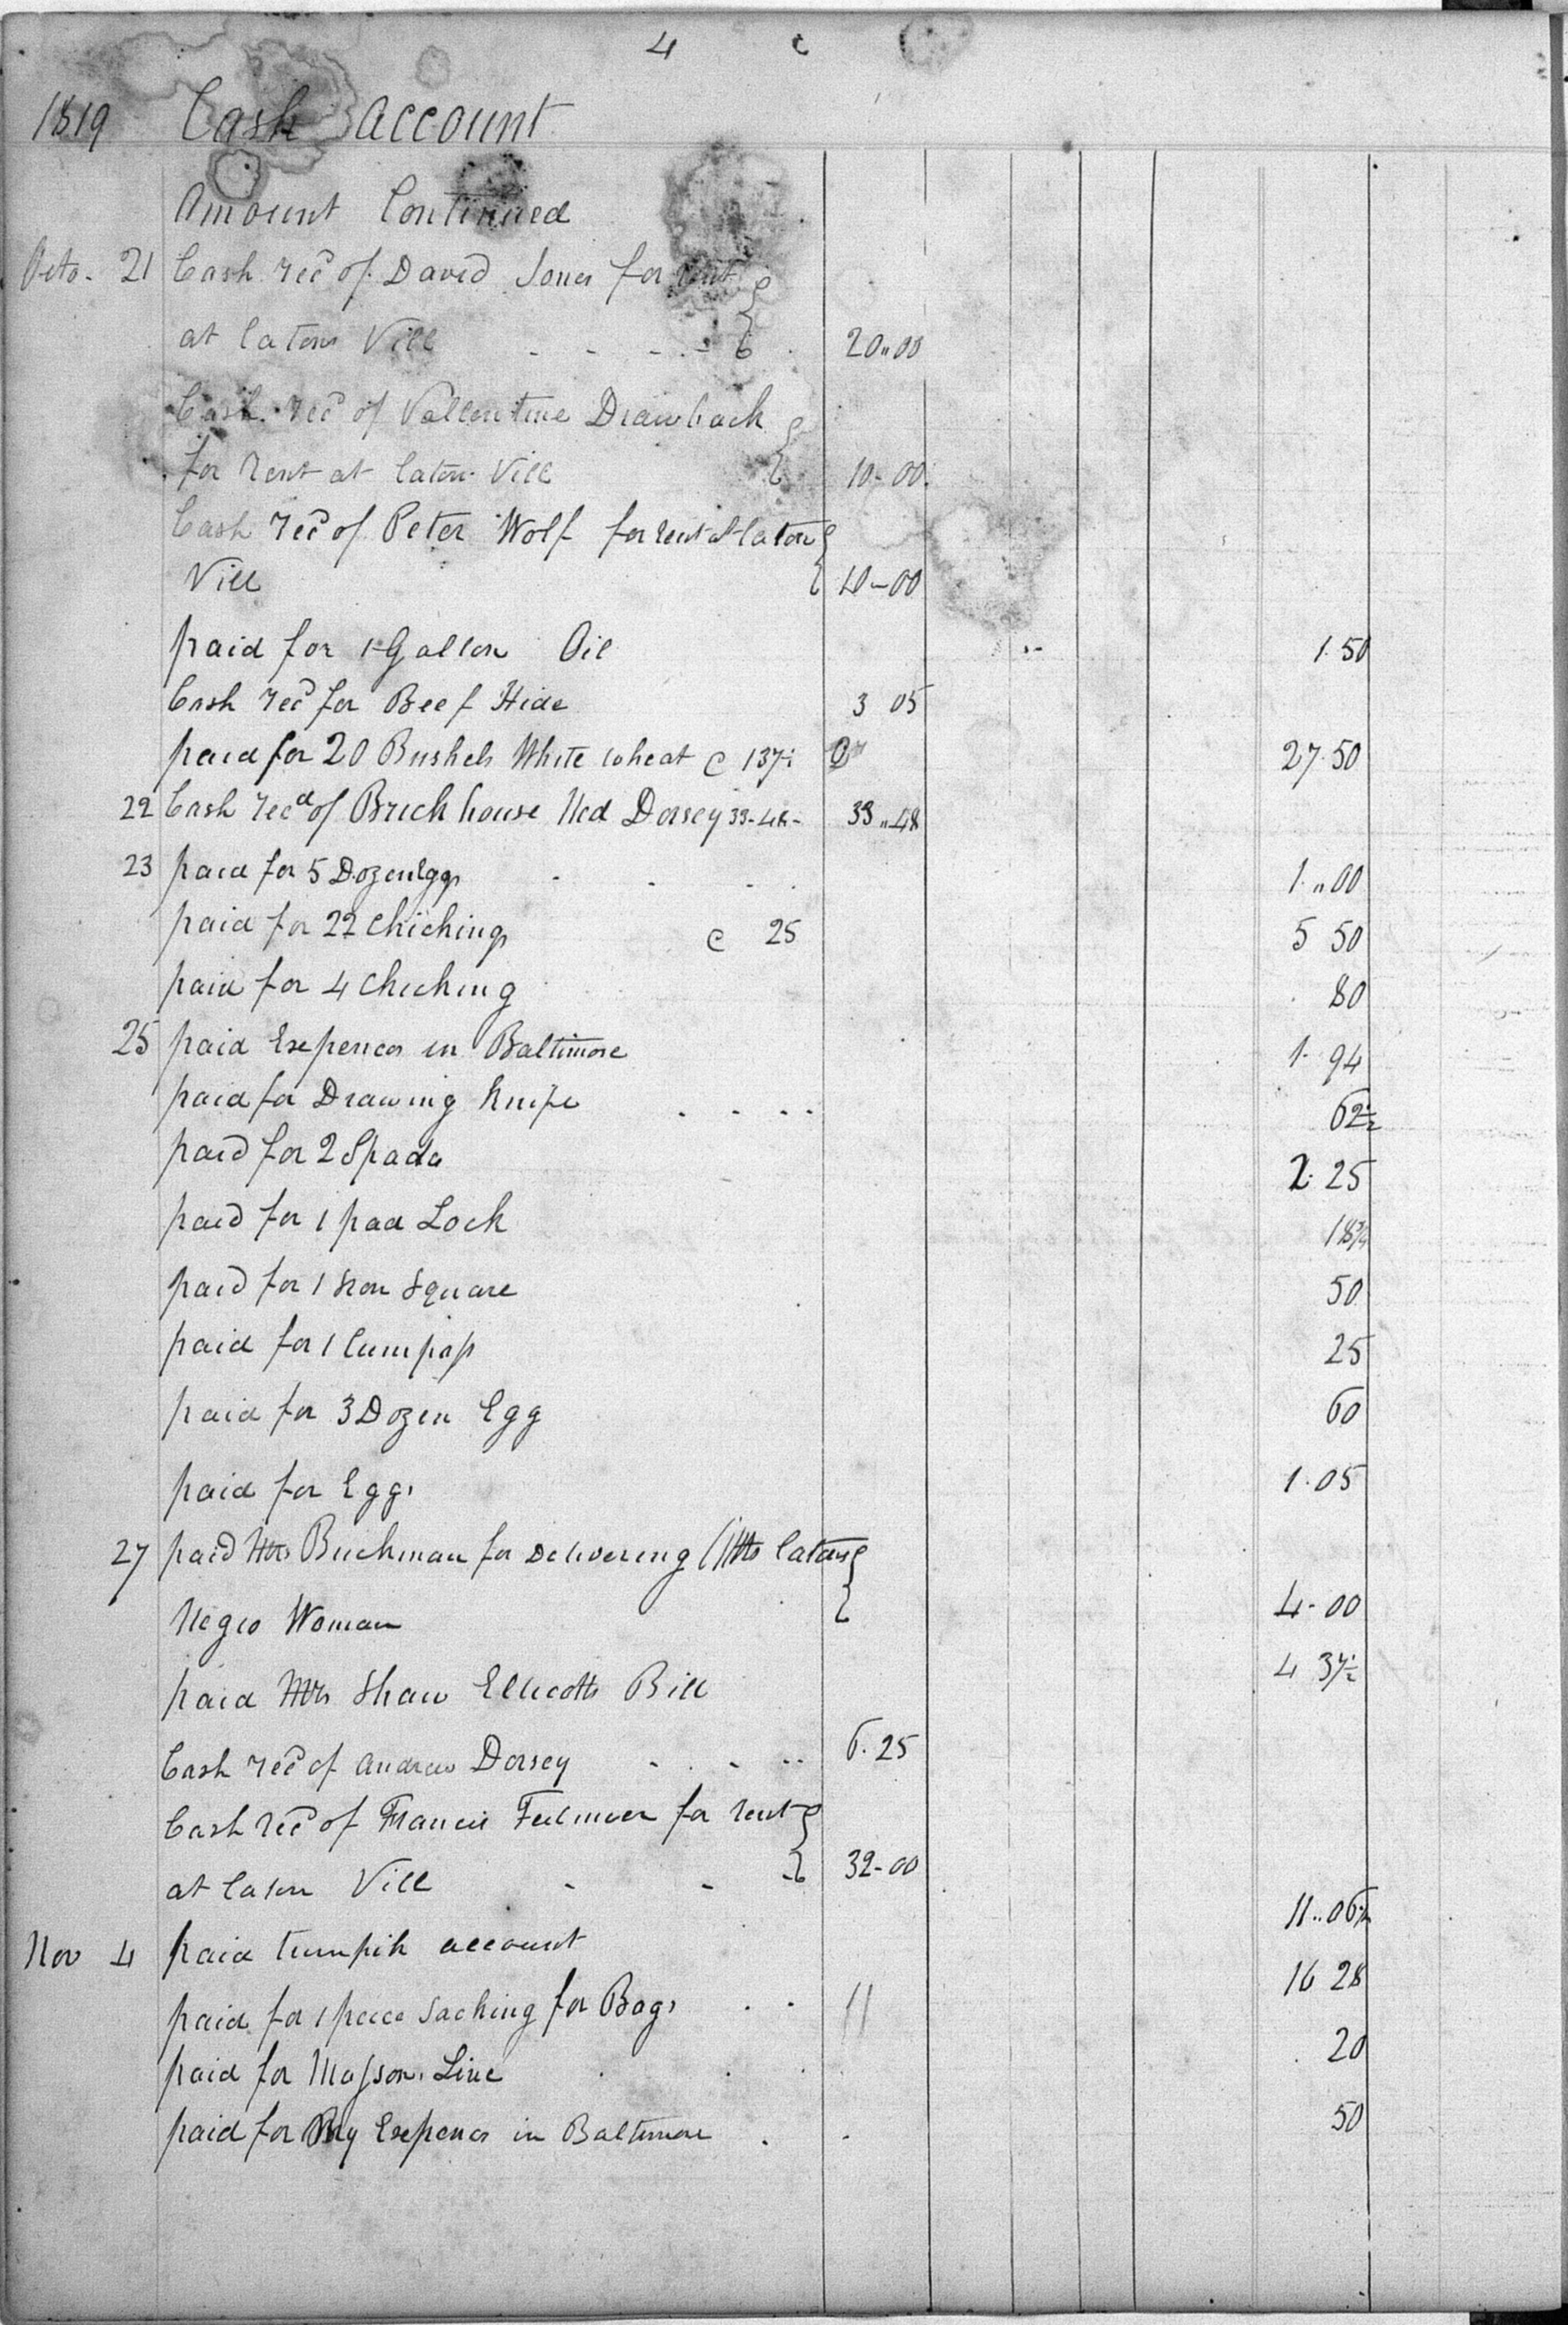 4 c
1819 Cash account
Amount Continued
Octo. 21 Cash recd of David Jones for rent
at Caton Vill - - - - 20"00
Cash recd of Vallentine Drawback
for Rent at Caton Vill 10-00
Cash recd of Peter Wolf for rent at Caton
Vill 10-00
paid for 1 Gallon Oil 1.50
Cash recd for Beef Hide 3 05
paid for 20 Bushels White wheat @ 137½ 27.50
22 Cash recd of Brick house Ned Dorsey 33-48- 33"48
23 paid for 5 Dozen Eggs 1."00
paid for 22 Chickings @ 25 5 50
paid for 4 Chicking 80
25 paid Expences in Baltimore 1.94
paid for Drawing Knife . . . . 62½
paid for 2 Spads 2.25
paid for 1 pad Lock 18¾
paid for 1 Iron Square 50
paid for 1 Cumpass 25
paid for 3 Dozen Egg 60
paid for Eggs 1.05
27 paid Mrs Buckman for Delivering Mrs Catons
Negro Woman 4-00
paid Mrs Shaw Ellicotts Bill 4 37½
Cash recd of Andrew Dorsey . . - .. 6.25
Cash recd of Francis for Rent
at Caton Vill - - 32-00
Nov 4 paid turnpik account 11..06½
paid for 1 peice Sacking for Bags . . 11 16 28
paid for Masson Line 20
paid for My Expences in Baltimore . . 50